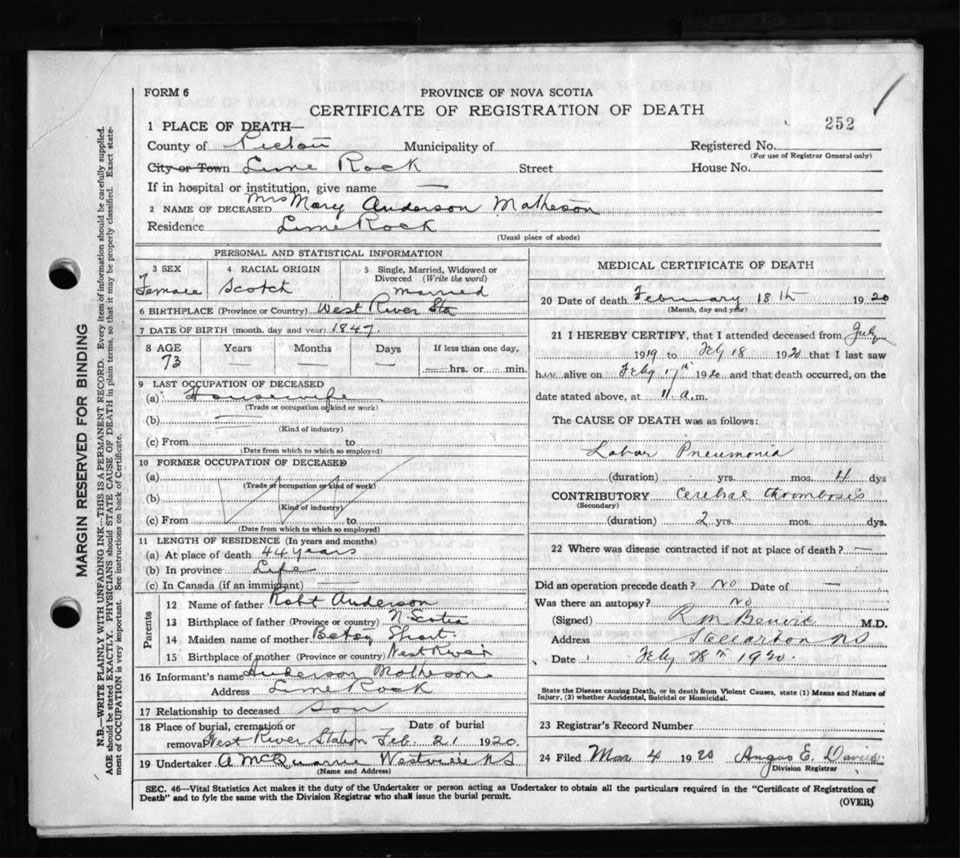 FORM 6
PROVINCE OF NOVA SCOTIA
CERTIFICATE OF REGISTRATION OF DEATH
252
1 PLACE OF DEATH—
County of Pictou Municipality of Registered No.
(For use of Registrar General only)
City or Town Lime Rock Street House No.
If in hospital or institution, give name —
2 NAME OF DECEASED Mrs Mary Anderson Matheson
Residence Lime Rock
(Usual place of abode)
PERSONAL AND STATISTICAL INFORMATION
3 SEX 4 RACIAL ORIGIN 5 Single, Married, Widowed or Divorced (Write the word)
Female Scotch Married
6 BIRTHPLACE (Province or Country) West River Sta
7 DATE OF BIRTH (month, day and year) 1847.
8 AGE Years Months Days If less than one day,
73 hrs. or min.
9 LAST OCCUPATION OF DECEASED
(a) Housewife
(Trade or occupation or kind or work)
(b)
(Kind of industry)
(c) From to
(Date from which to which so employed)
10 FORMER OCCUPATION OF DECEASED
(a)
(Trade or occupation or kind of work)
(b)
(Kind of industry)
(c) From to
(Date from which to which so employed)
11 LENGTH OF RESIDENCE (In years and months)
(a) At place of death 44 years
(b) In province Life
(c) In Canada (if an immigrant) —
Parents
12 Name of father Robt Anderson
13 Birthplace of father (Province or country) N. Scotia
14 Maiden name of mother Betsy Short.
15 Birthplace of mother (Province or country) West River
16 Informant's name Anderson Matheson
Address Lime Rock
17 Relationship to deceased Son
18 Place of burial, cremation or removal Date of burial
West River Station Feb. 21 1920.
19 Undertaker A McQuarrie Westville N S
(Name and Address)
MEDICAL CERTIFICATE OF DEATH
20 Date of death February 18th 1920
(Month, day and year)
21 I HEREBY CERTIFY, that I attended deceased from July
1919 to Feby 18 1920 that I last saw
h alive on Feby 17th 1920 and that death occurred, on the
date stated above, at 11 a.m.
The CAUSE OF DEATH was as follows:
Lobar Pneumonia
(duration) yrs. mos. 4 dys
CONTRIBUTORY Cerebral thrombosis
(Secondary)
(duration) 2 yrs. mos. dys.
22 Where was disease contracted if not at place of death? —
Did an operation precede death? No Date of —
Was there an autopsy? No
(Signed) R M M.D.
Address Stellarton NS
Date Feby 28th 1920.
State the Disease causing Death, or in death from Violent Causes, state (1) Means and Nature of
Injury, (2) whether Accidental, Suicidal or Homicidal.
23 Registrar's Record Number
24 Filed Mar 4 1920 Angus E.
Division Registrar
SEC. 46—Vital Statistics Act makes it the duty of the Undertaker or person acting as Undertaker to obtain all the particulars required in the "Certificate of Registration of
Death" and to fyle the same with the Division Registrar who shall issue the burial permit.
(OVER)
MARGIN RESERVED FOR BINDING
N.B.—WRITE PLAINLY, WITH UNFADING INK—THIS IS A PERMANENT RECORD. Every item of information should be carefully supplied.
AGE should be stated EXACTLY. PHYSICIANS should STATE CAUSE OF DEATH in plain terms, so that it may be properly classified. Exact state-
ment of OCCUPATION is very important. See instructions on back of Certificate.